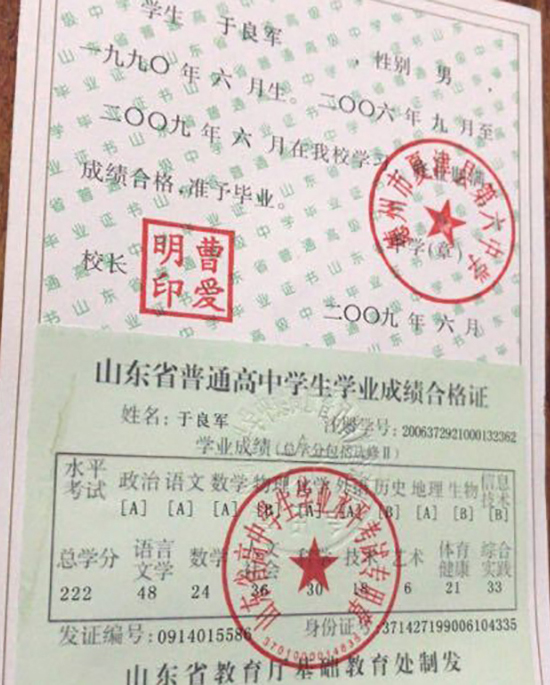 学生 于良军 ，性别 男 ，
一九九〇年 六 月生。二〇〇六年 九 月至
二〇〇九年 六 月在我校学习
成绩合格,准予毕业。
德州市夏津县第六中学
中学(章)
校长
曹爱明印
二〇〇九年 六 月
山东省普通高中学生学业成绩合格证
姓名:于良军 注册学号:2006372921000132362
学业成绩(总学分包括选修Ⅱ)
水平考试 政治 语文 数学 物理 化学 外语 历史 地理 生物 信息技术
[A] [A] [A] [B] [A] [B] [A] [B] [B]
总学分 语言文学 数学 技术 艺术 体育健康 综合实践
222 48 24 36 30 18 6 21 33
发证编号:0914015586 身份证号:371427199006104335
山东省教育厅基础教育处制发